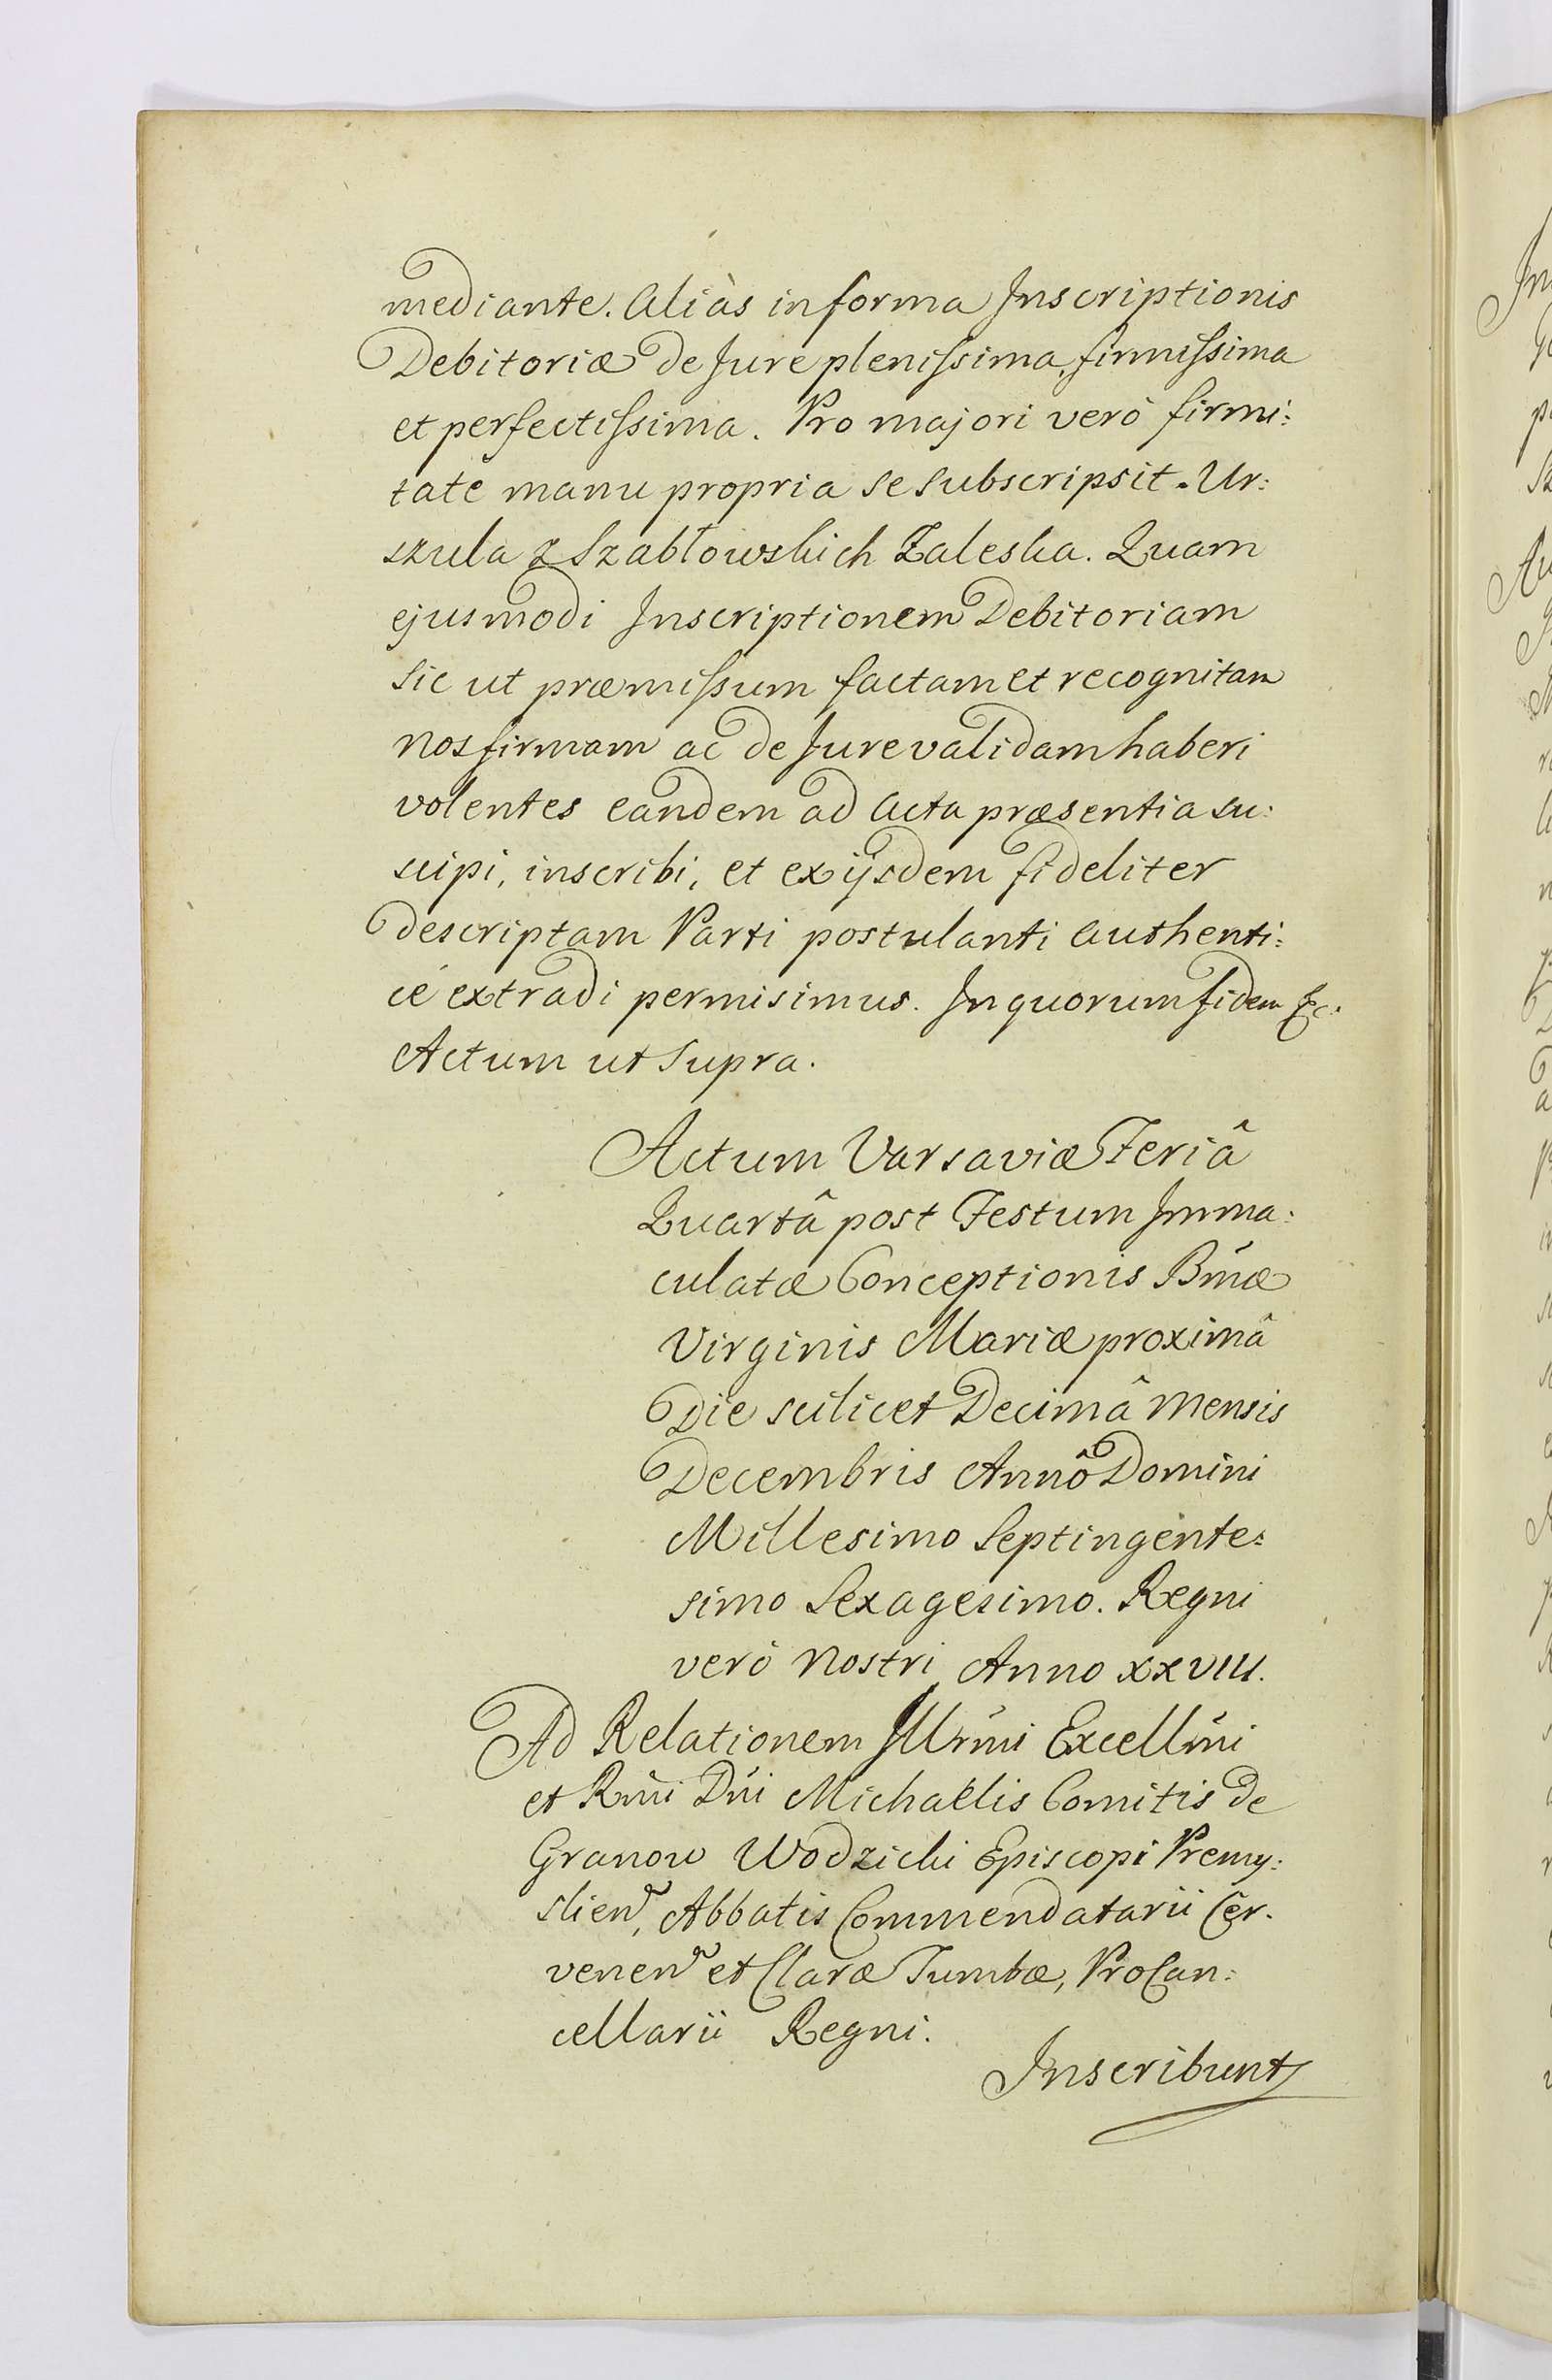 mediante. Aliàs in forma Inscriptionis
Debitoriæ de Jure plenissima, firmissima
et perfectissima. Pro majori verò firmi:
tate manu propria se subscripsit. Ur:
szula z Szabłowskich Zaleska. Quam
ejusmodi Inscriptionem Debitoriam
sic ut præmissum factam et recognitam
nos firmam ac de Jure validam haberi
volentes eandem ad Acta præsentia su:
scipi, inscribi, et ex ijsdem fideliter
descriptam Parti postulanti authenti:
cè extradi permisimus. In quorum fidem &c.
Actum ut supra.
Actum Varsaviæ Feriâ
Quartâ post Festum Imma:
culatæ Conceptionis Bmæ
Virginis Mariæ proximâ
Die scilicet Decimâ Mensis
Decembris Annô Domini
Millesimo Septingente:
simo Sexagesimo. Regni
verò Nostri Anno XXVIII.
Ad Relationem Illrmi Excellmi
et Rmi Dni Michaëlis Comitis de
Granow Wodzicki Episcopi Premy:
slien, Abbatis Commendatarii Cer.
venen et Claræ Tumbæ, ProCan:
cellarii Regni.
Inscribunt